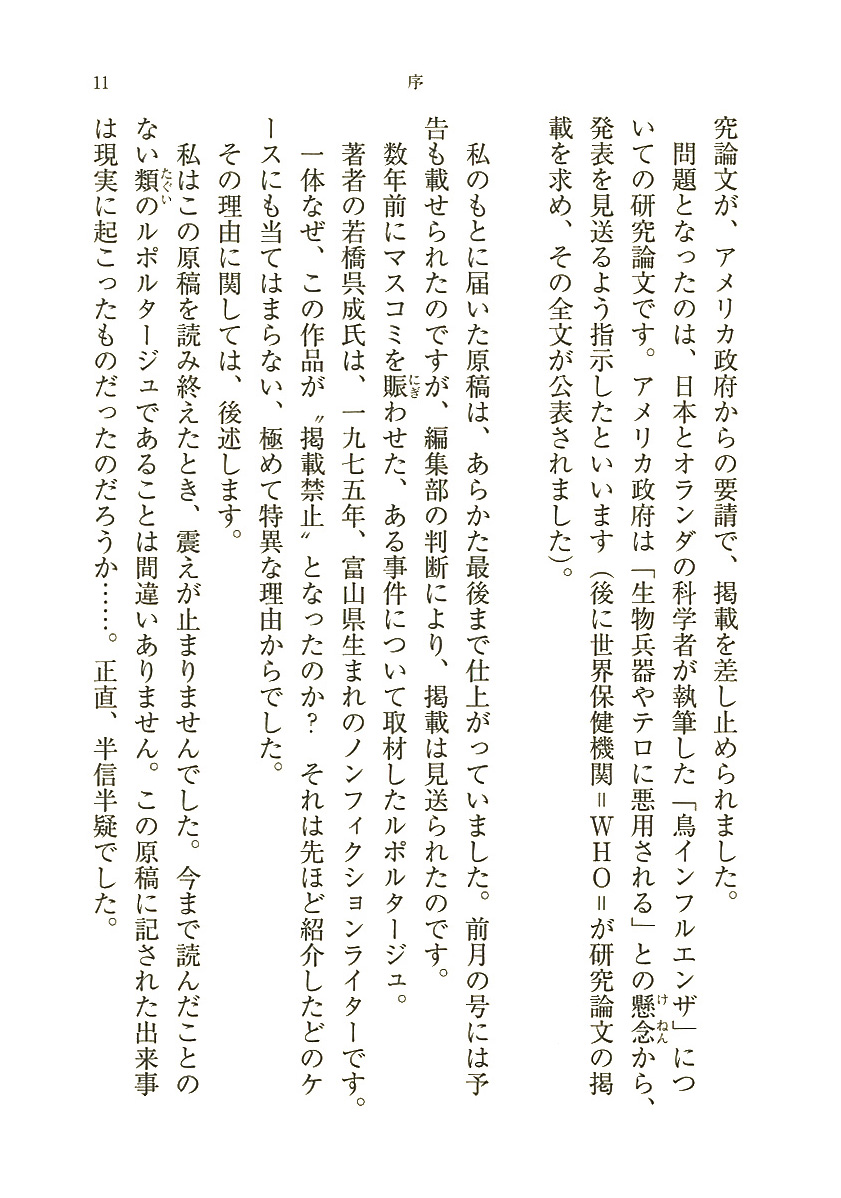 序
11
究論文が、アメリカ政府からの要請で、掲載を差し止められました。
問題となったのは、日本とオランダの科学者が執筆した「鳥インフルエンザ」につ
いての研究論文です。アメリカ政府は「生物兵器やテロに悪用される」との懸念から、
けねん
発表を見送るよう指示したといいます（後に世界保健機関＝ＷＨＯ＝が研究論文の掲
載を求め、その全文が公表されました）。
私のもとに届いた原稿は、あらかた最後まで仕上がっていました。前月の号には予
告も載せられたのですが、編集部の判断により、掲載は見送られたのです。
数年前にマスコミを賑わせた、ある事件について取材したルポルタージュ。
にぎ
著者の若橋呉成氏は、一九七五年、富山県生まれのノンフィクションライターです。
一体なぜ、この作品が〝掲載禁止〟となったのか？　それは先ほど紹介したどのケ
ースにも当てはまらない、極めて特異な理由からでした。
その理由に関しては、後述します。
私はこの原稿を読み終えたとき、震えが止まりませんでした。今まで読んだことの
ない類のルポルタージュであることは間違いありません。この原稿に記された出来事
たぐい
は現実に起こったものだったのだろうか……。正直、半信半疑でした。